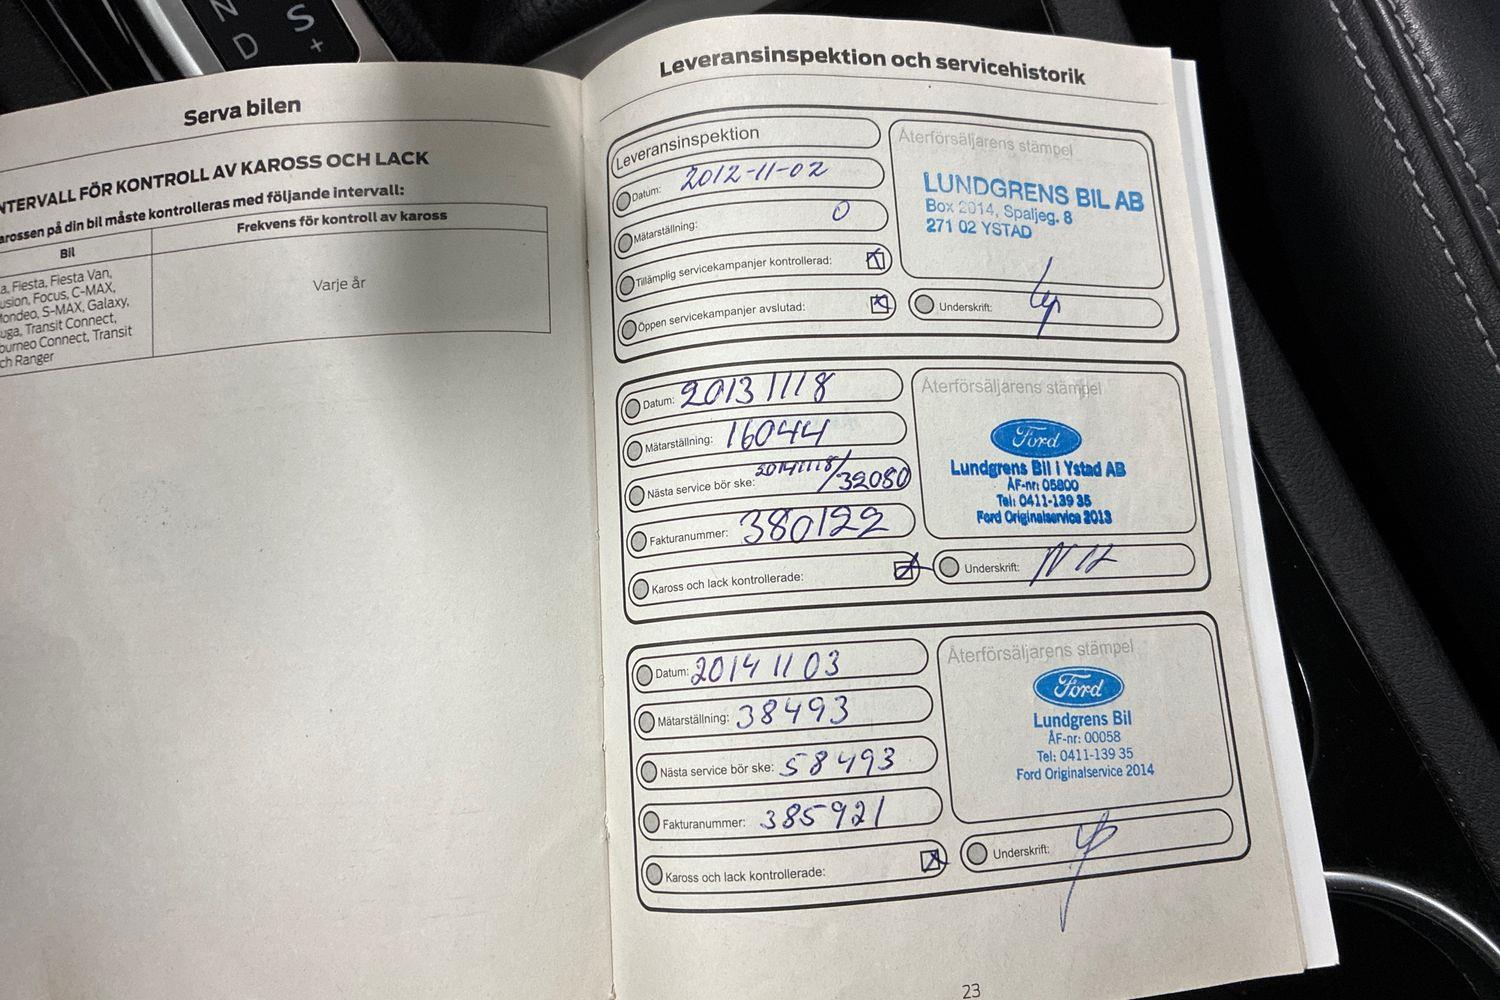 N
D
S
+
Serva bilen
NTERVALL FÖR KONTROLL AV KAROSS OCH LACK
arossen på din bil måste kontrolleras med följande intervall:
Bil
Frekvens för kontroll av kaross
a, Fiesta, Fiesta Van,
usion, Focus, C-MAX,
ondeo, S-MAX, Galaxy,
uga, Transit Connect,
ourneo Connect, Transit
ch Ranger
Varje år
Leveransinspektion och servicehistorik
Leveransinspektion
Datum: 2012-11-02
Mätarställning: 0
Tillämplig servicekampanjer kontrollerad:
Öppen servicekampanjer avslutad:
Återförsäljarens stämpel
LUNDGRENS BIL AB
Box 2014, Spaljeg. 8
271 02 YSTAD
Underskrift:
Datum: 2013 11 18
Mätarställning: 16044
Nästa service bör ske: 20141118/32080
Fakturanummer: 380122
Kaross och lack kontrollerade:
Återförsäljarens stämpel
Ford
Lundgrens Bil i Ystad AB
ÅF-nr: 05800
Tel: 0411-139 35
Ford Originalservice 2013
Underskrift:
Datum: 2014 11 03
Mätarställning: 38493
Nästa service bör ske: 58493
Fakturanummer: 385921
Kaross och lack kontrollerade:
Återförsäljarens stämpel
Ford
Lundgrens Bil
ÅF-nr: 00058
Tel: 0411-139 35
Ford Originalservice 2014
Underskrift:
23